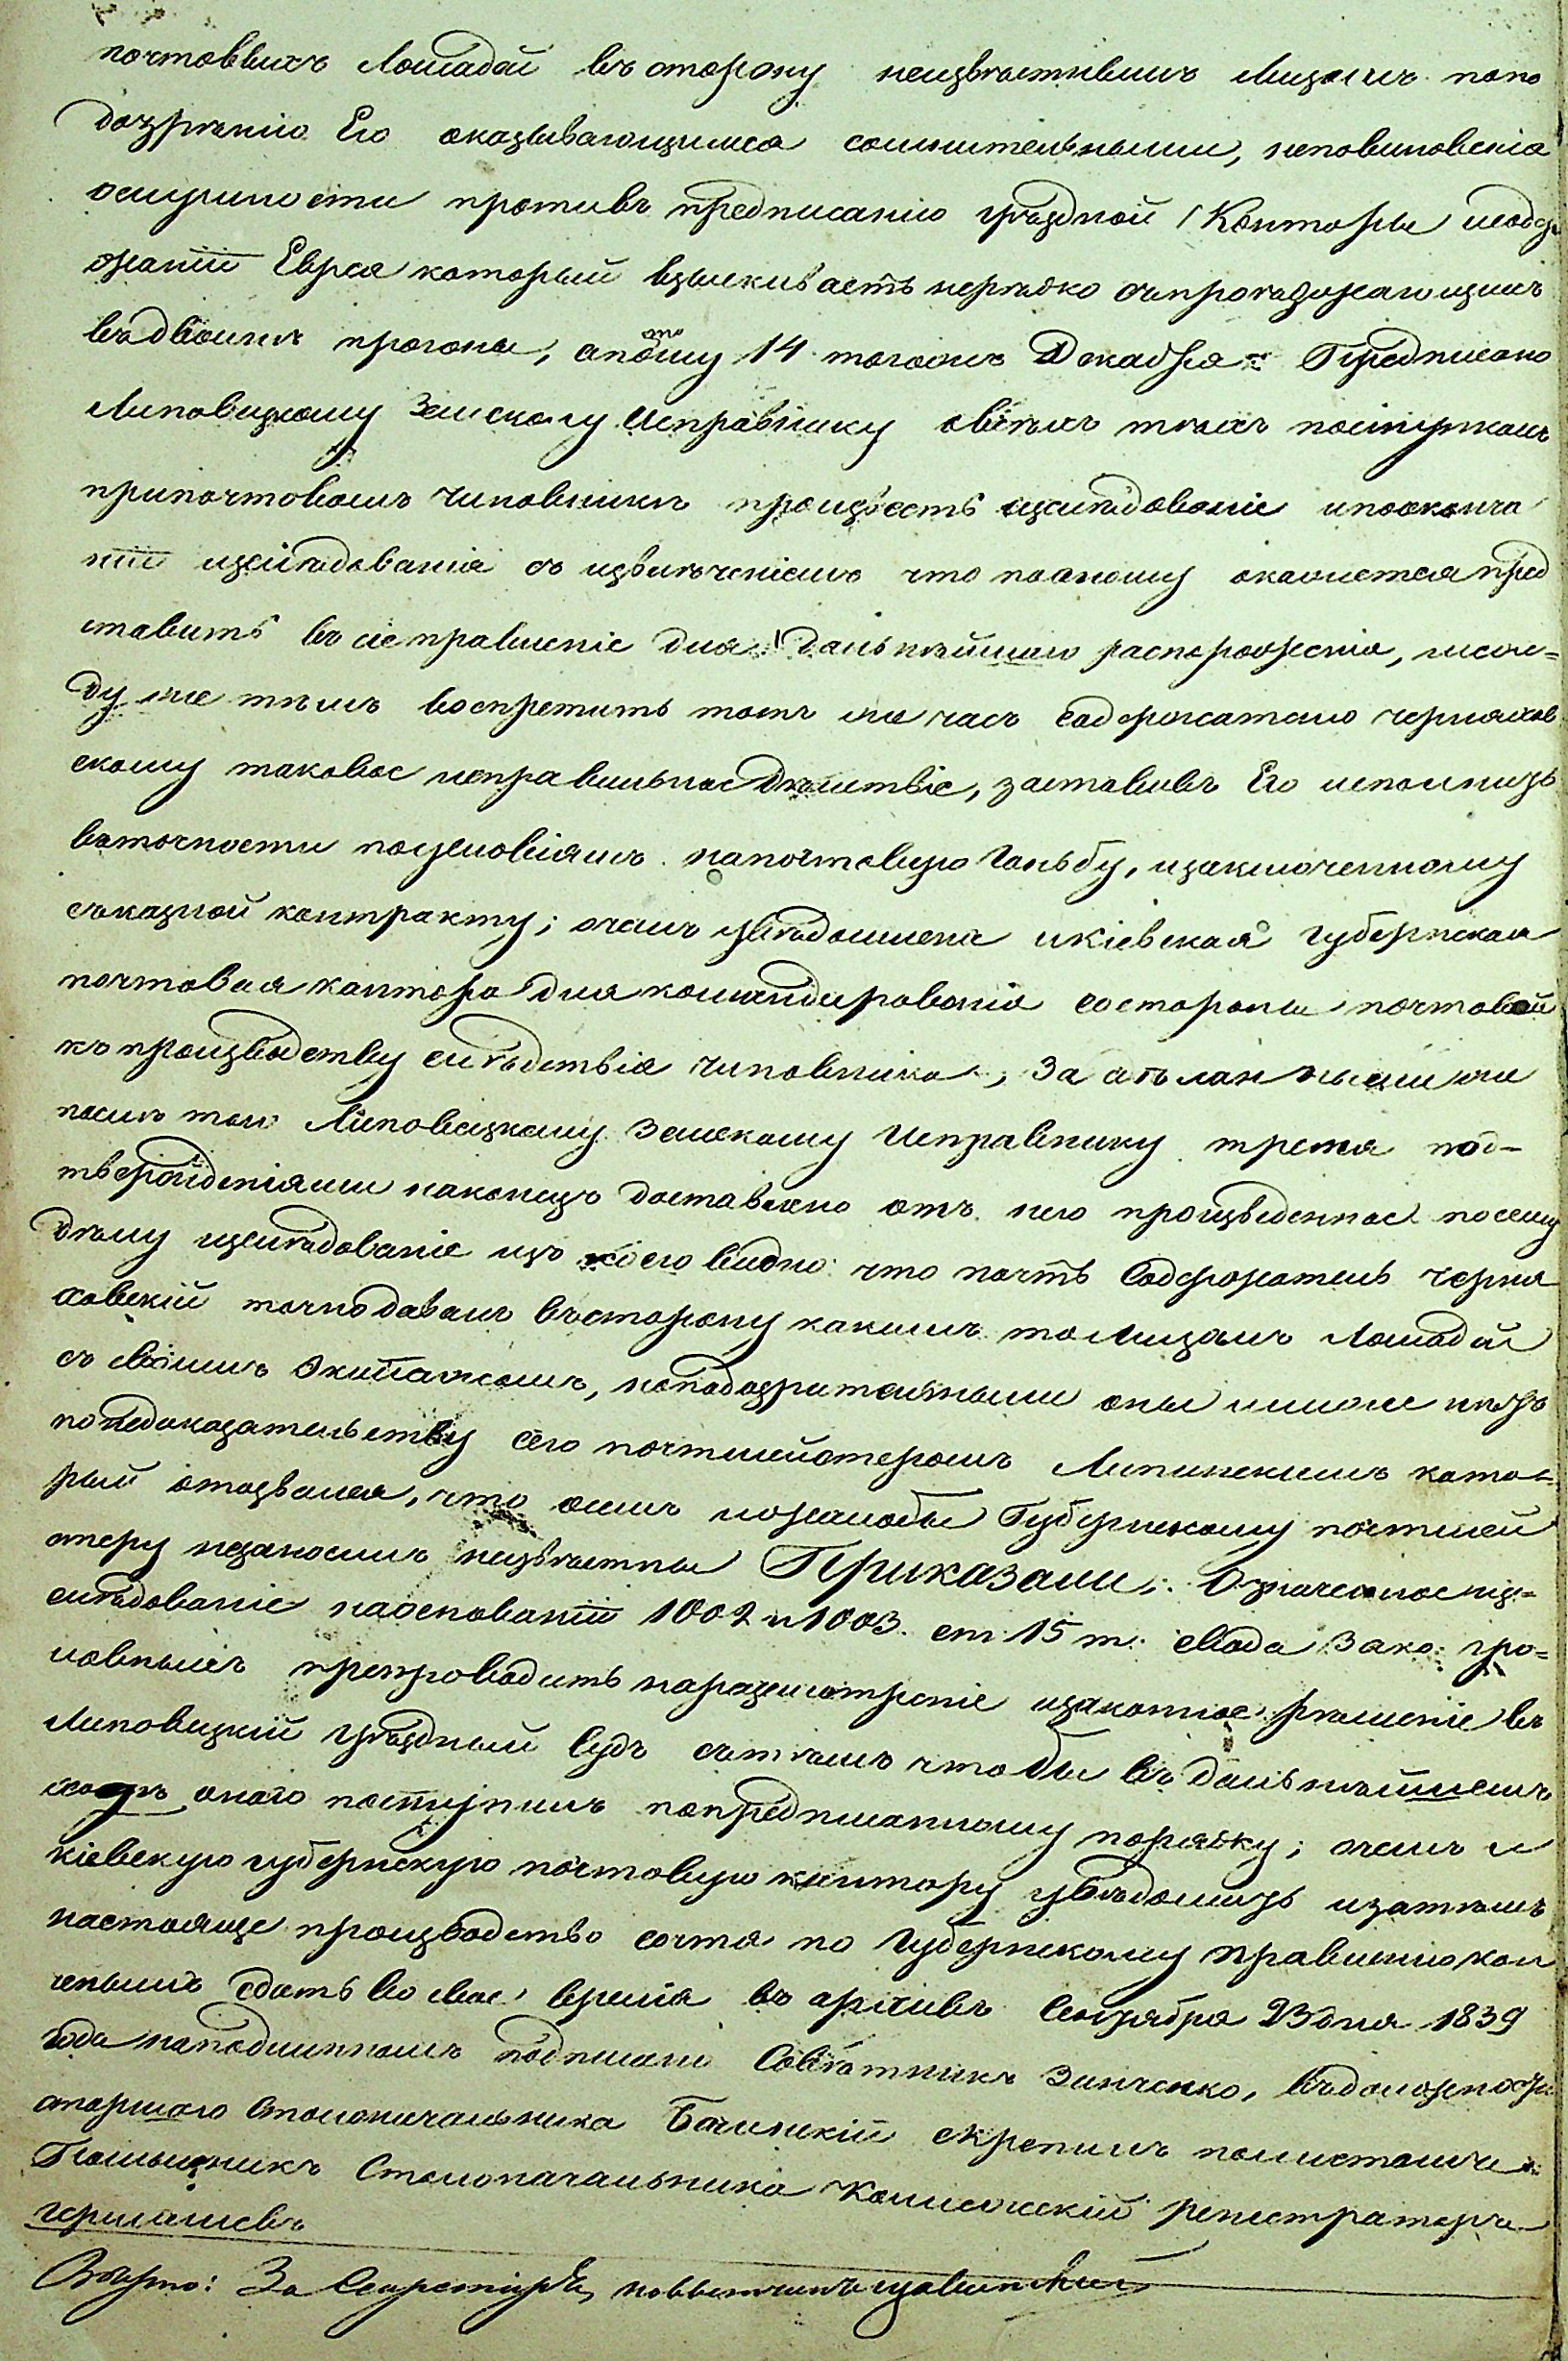 почтовыхъ Лошадей въ сторону неизвѣстнымъ Лицамъ по по
дозрѣнію Его оказывающимся сомнительными, неповиновенія
осмѣлности противъ предписанію уѣздной Конторы исодер
жаній Еврея который взыскиваетъ нерѣдко съпроѣзжающихъ
въдвоимъ прогоны, апо этому 14 тогожъ Декабря Предписано
Липовецкому Земскому Исправнику овсѣхъ тѣхъ поступкахъ
припочтовомъ чиновникѣ произвесть изслѣдованіе ипооконча
ніи изслѣдованія съ извлеченіемъ что пооному окажется пред
ставить въ сіе правленіе для дальнѣйшаго распоряженія, меж=
ду же тѣмъ воспретить тотъ же часъ содержателю Черняхов
скому таковое неправильное дѣйствіе, заставивъ Его исполнять
вточности поусловіямъ напочтовую Гоньбу, изаключенному
съказной контракту; очемъ увѣдомлена иКіевская Губернская
почтовая контора для командированія состороны почтовой
къ производству слѣдствія чиновника, За адѣланными же
послѣ того Липовецкому Земскому Исправнику тремя под-
твержденіями наконецъ доставлено отъ него произведенное посему
дѣлу изслѣдованіе изъ коего видно что почтъ Содержатель Черня
ховскій точно давалъ въсторону какимъ то Лицамъ Лошадей
съ своимъ Экипажомъ, ноподозрительными оны или же нѣтъ
понедоказательству сего почтмейстеромъ Липинскимъ кото=
рый отозвался, что оомъ ижалобы Губернскому почтмей
стеру незаносилъ неизвѣстны Приказали: Означенное из=
слѣдованіе наоснованіи 1002 и 1003. ст. 15 т. свода Зако: уго=
ловныхъ препроводить наразсмотреніе изаконное рѣшеніе въ
Липовецкій Уѣздный Судъ сътѣмъ чтобы въ дальнѣйшемъ
ходѣ онаго поступилъ попредписанному порядку; очемъ и
Кіевскую губернскую почтовую контору увѣдомить изатѣмъ
настояще производство сочтя по Губернскому Правленію кон
ченымъ сдать во свое время въ архивъ Сентября 23 дня 1839
года наподлинномъ подписали Совѣтникъ Зинченко, въдолжности
старшаго Столоначальника Бачинскій скрепилъ полистамъ
Помощникъ Столоначальника регистраторъ
Вѣрно: За Секретаря,